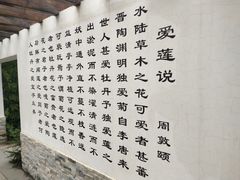 爱莲说
周敦颐
水陆草木之花可爱者甚蕃
晋陶渊明独爱菊自李唐来
世人甚爱牡丹予独爱莲之
出淤泥而不染濯清涟而不
妖中通外直不蔓不枝香远
益清亭亭净植可远观而不
可亵玩焉予谓菊花之隐逸
者也牡丹花之富贵者也莲
花之君子者也噫菊之爱陶
后鲜有闻莲之爱同予者何
人牡丹之爱宜乎众矣